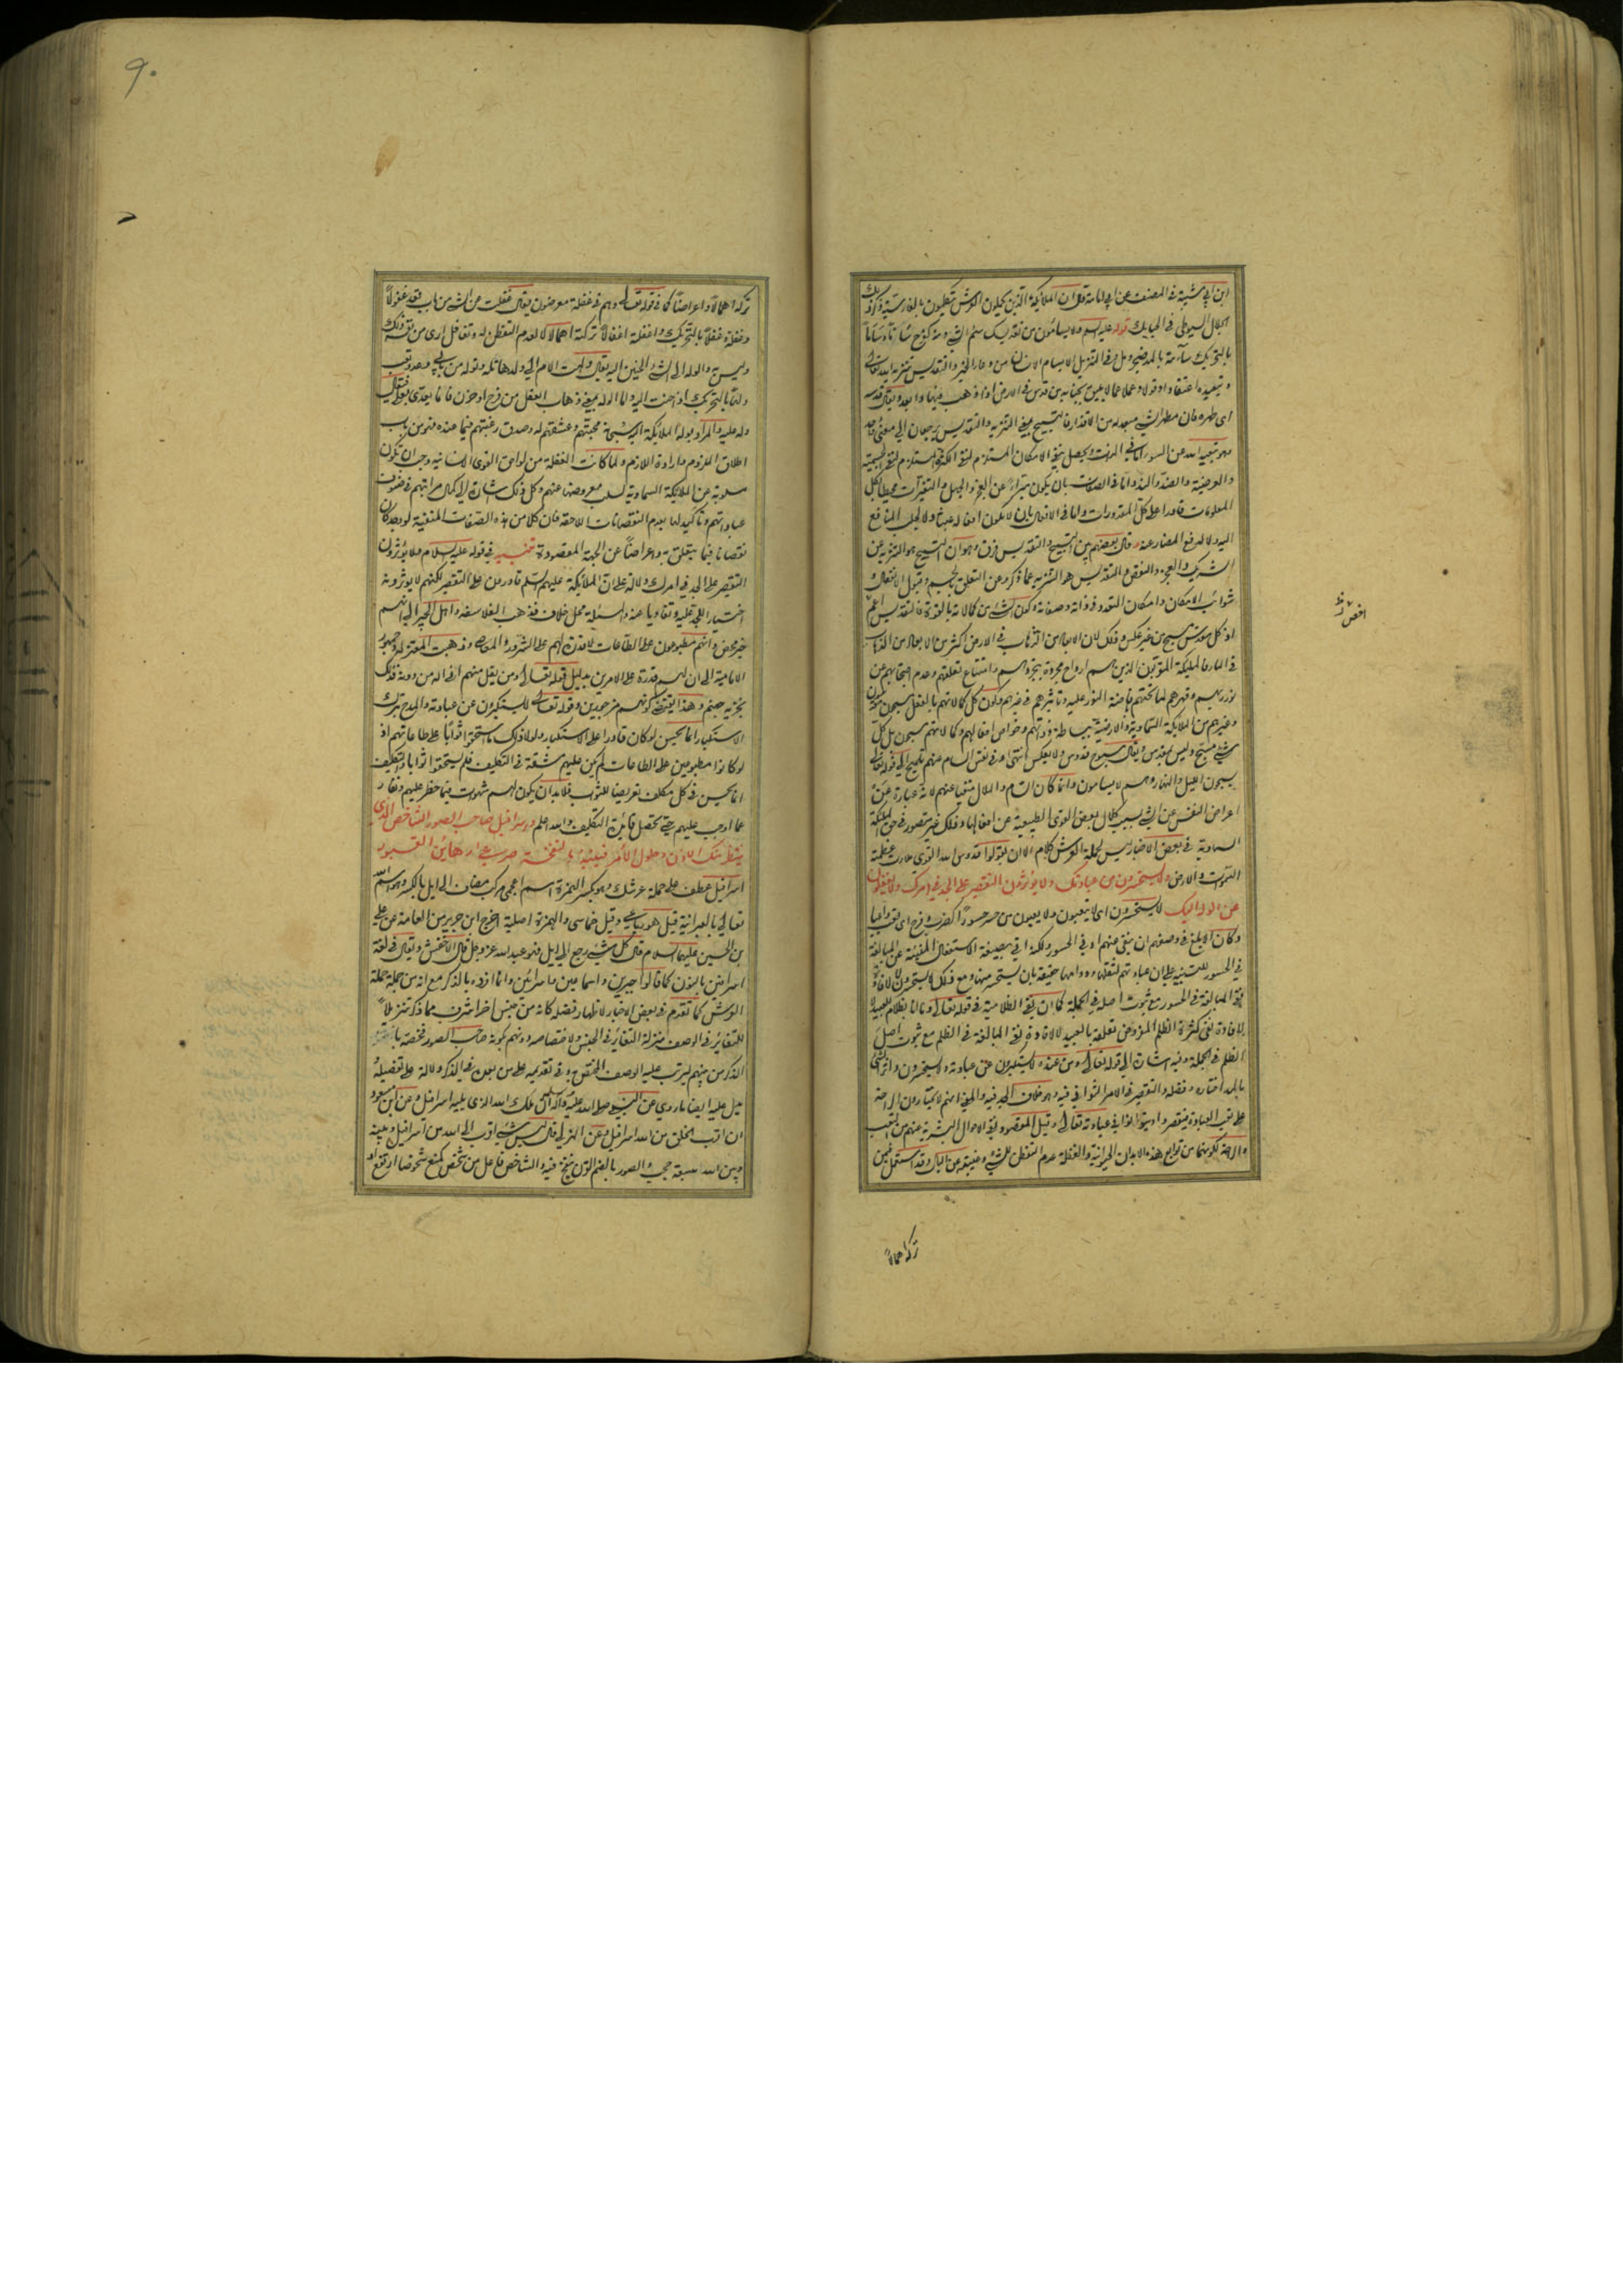 ابن ابي شيبة في المصنف عن ابي امامة قال ان الملائكة الذين يحملون العرش يتكلمون بالفارسية ذكر ذلك
الجلال السيوطي في الحبايك قوله عليه السلم ولا يسأمون من تقديسك سئم الشيء ومنه
بالتحريك سآمة بالمد ضجر ومل وفي التنزيل لا يسأم الانسان من دعاء الخير والتقديس تنزيه الله تعالى
وتبعيده اعتقادا وقولا وعملا عما لا يليق بجنابه من قدس في الارض اذا ذهب فيها وابعد ويقال قدسه
اى طهره فان مطهر الشيء مبعده من الاقذار فالتسبيح والتقديس يرجعان الى معنى واحد
وهو تبعيد الله من السوء اما في الذات ويحصل بنفي الامكان المستلزم لنفي الكثرة المستلزم لنفي الجسمية
والعرضية والضد والند واما في الصفات بان يكون مبرءا عن العجز والجهل والتغيرات محيطا بكل
المعلومات قادرا على كل المقدورات واما في الافعال بان لا يكون افعاله عبثا ولا لجلب المنافع
اليه ولا لدفع المضار عنه وقال بعضهم بين التسبيح والتقديس فرق وهو ان التسبيح هو التنزيه عن
الشريك والعجز والنقص والتقديس هو التنزيه عما ذكر وعن التعلق بالجسم وقبول الانفعال
شوائب الامكان وامكان التعدد في ذاته وصفاته وكون الشيء من كمالاته بالقوة فالتقديس اعم
اذ كل مقدس مسبح من غير عكس وذلك لان الابعاد من الذهاب في الارض اكثر من الابعاد من الذهاب
في الماء فالملائكة المقربون الذين هم ارواح مجردة بتجردهم وامتناع تعلقهم وعدم احتجابهم عن
نور ربهم وقهرهم لما تحتهم بافاضة النور عليه وتاثيرهم في غيرهم وكون كل كمالاتهم بالفعل مسبحون مقدسون
وغيرهم من الملائكة السماوية والارضية ببساطة ذواتهم وخواص افعالهم وكمالاتهم مسبحون بل كل
شيء مسبح وليس بمقدس ويقال سبوح قدوس ولا يعكس انتهى وفي نفى السأم عنهم تلميح الى قوله تعالى
يسبحون له بالليل والنهار وهم لا يسأمون وانما كان السأم والملال منفيا عنهم لانه عبارة عن
اعراض النفس عن الشيء بسبب كلال بعض القوى الطبيعية عن افعالها وذلك غير متصور في حق الملائكة
السماوية في بعض الاخبار ليس لحملة العرش كلام الا ان يقولوا قدوس الله القوى ملأت عظمته
السموات والارض ولا يستحسرون من عبادتك ولا يؤثرون التقصير على الجد في امرك ولا يغفلون
عن الوله اليك لا يستحسرون اى لا يتعبون ولا يعيون من حسر حسورا كضرب وفرح اى تعب واعيا
وكان الابلغ في وصفهم ان ينفى عنهم ادنى الحسور ولكنه اتى بصيغة الاستفعال المنبئة عن المبالغة
في الحسور للتنبيه على ان عبادتهم لثقلها ودوامها حقيقة بان يستحسر منها ومع ذلك لا يستحسرون لا لافادة
نفي المبالغة في الحسور مع ثبوت اصله في الجملة كما ان نفي الظلامية في قوله تعالى وما انا بظلام للعبيد
لافادة نفي كثرة الظلم المفروض تعلقه بالعبيد لا لافادة نفي المبالغة في الظلم مع ثبوت اصل
الظلم في الجملة وفيه اشارة الى قوله تعالى ومن عنده لا يستكبرون عن عبادته ولا يستحسرون واثر الشيء
بالمد اختاره وفضله والتقصير في الامر التوانى فيه وهو خلاف الجد فيه والمعنى انهم لا يختارون الراحة
على تعب العبادة فيقصروا ويتوانوا في عبادته تعالى وقيل المقصود نفي الاحوال البشرية عنهم من التعب
والراحة لكونهما من توابع هذه الابدان الحيوانية والغفلة عدم التفطن للشيء وغيبته عن البال وقد استعمل فيمن
تركه اهمالا
تركه اهمالا واعراضا كما في قوله تعالى وهم في غفلة معرضون يقال غفلت عن الشيء من باب قعد غفولا
وغفلة وغفلا بالتحريك واغفلته اغفالا تركته اهمالا لا لعدم التفطن له وتغافل ارى من نفسه ذلك
وليس به والوله الى الشيء الحنين اليه يقال ولهت الام الى ولدها تله وتوله من بابي وعد وتعب
ولها بالتحريك اذا حنت اليه واما الوله بمعنى ذهاب العقل من فرح او حزن فانما يعدى بعلى فيقال
وله عليه والمراد بوله الملائكة اليه سبحانه محبتهم وعشقهم له وصدق رغبتهم فيما عنده فهو من باب
اطلاق الملزوم وارادة اللازم ولما كانت الغفلة من لواحق القوى الانسانية وجب ان تكون
مسلوبة عن الملائكة السماوية لسلب معروضها عنهم وكل ذلك اشارة الى كمال مراتبهم في صنوف
عباداتهم وتاكيد لها بعدم النقصانات اللاحقة فان كلا من هذه الصفات المنفية لو وجد كان
نقصانا فيما يتعلق به واعراضا عن الجهة المقصودة تنبيه في قوله عليه السلام ولا يؤثرون
التقصير على الجد في امرك دلالة على ان الملائكة عليهم السلم قادرون على التقصير لكنهم لا يؤثرونه
اختيارا للجد عليه وتفاديا عنه والمسئلة محل خلاف فذهب الفلاسفة واهل الجبر الى انهم
خير محض وانهم مطبوعون على الطاعات لا قدرة لهم على الشرور والمعاصي وذهبت المعتزلة وجمهور
الامامية الى ان لهم قدرة على الامرين بدليل قوله تعالى ومن يقل منهم انى اله من دونه فذلك
نجزيه جهنم وهذا يقتضي كونهم مزجورين وقوله تعالى لا يستكبرون عن عبادته والمدح بترك
الاستكبار انما يحسن لو كان قادرا على الاستكبار ولولا ذلك ما استحقوا ثوابا على طاعاتهم اذ
لو كانوا مطبوعين على الطاعات لم يكن عليهم مشقة في التكليف فلم يستحقوا ثوابا والتكليف
انما يحسن في كل مكلف تعريضا للثواب فلا بد ان يكون لهم شهوات فيما حظر عليهم ونفار
عما اوجب عليهم حتى تحصل فائدة التكليف والله اعلم واسرافيل صاحب الصور الشاخص الذى
ينتظر منك الاذن وحلول الامر فينبه بالنفخة صرعى رهائن القبور
اسرافيل عطف على حملة عرشك وهو بكسر الهمزة اسم اعجمى مركب مضاف الى ايل بالكسر وهو اسم الله
تعالى بالعبرانية قيل هو رباعي وقيل خماسى والهمزة اصلية اخرج ابن جرير من العامة عن علي
بن الحسين عليهما السلام قال كل شيء رجع الى ايل فهو عبد الله عز وجل قال الاخفش ويقال في لغة
اسرافين بالنون كما قالوا جبرين واسماعين واسرائين وانما افرده بالذكر مع انه من جملة حملة
العرش كما تقدم في بعض الاخبار لاظهار فضله كانه من جنس اخر اشرف مما ذكر تنزيلا
للتغاير في الوصف منزلة التغاير في الجنس ولاختصاصه دونهم بكونه صاحب الصور فخصه
الذكر من بينهم ليرتب عليه الوصف المختص به وفي تقديمه على من بعده في الذكر دلالة على تفضيله
يدل عليه ايضا ما روي عن النبي صلى الله عليه وآله ان ملك الله الذى يليه اسرافيل وعن ابن مسعود
ان اقرب الخلق من الله اسرافيل وعن الهذلي قال ليس شيء اقرب الى الله من اسرافيل وبينه
وبين الله سبعة حجب والصور بالضم القرن ينفخ فيه والشاخص فاعل من شخص كمنع شخوصا ارتفع او